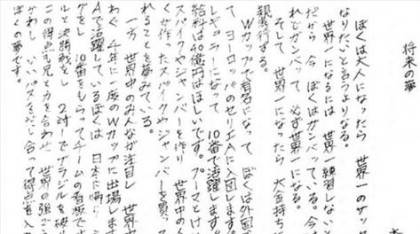 将来の夢
ぼくは大人になったら 世界一のサッ
なりたいと言うよりなる。
世界一になるには 世界一練習しない
だから 今 ぼくはガンバっている。今
れどガンバって 必ず世界一になる。
そして 世界一になったら 大金持ち
親孝行する。
Wカップで有名になって ぼくは外国
て ヨーロッパのセリエAに入団します。
レギュラーになって 10番で活躍します。
給料は40億円はほしいです。プーマとけい
スパイクやジャンバーを作り 世界中の
くが作ったスパイクやジャンバーを買
れることを夢みている。
一方 世界中のみんなが注目し 世界中
わぐ 4年に一度のWカップに出場しま
Aで活躍しているぼくは 日本に帰り
グをし 10番をもらってチームの看板です
ルと決勝戦をし 2対1でブラジルを破り
この得点も兄と力を合わせ 世界の強ごう
かわし いいパスをだし合って得点を入
ぼくの夢です。